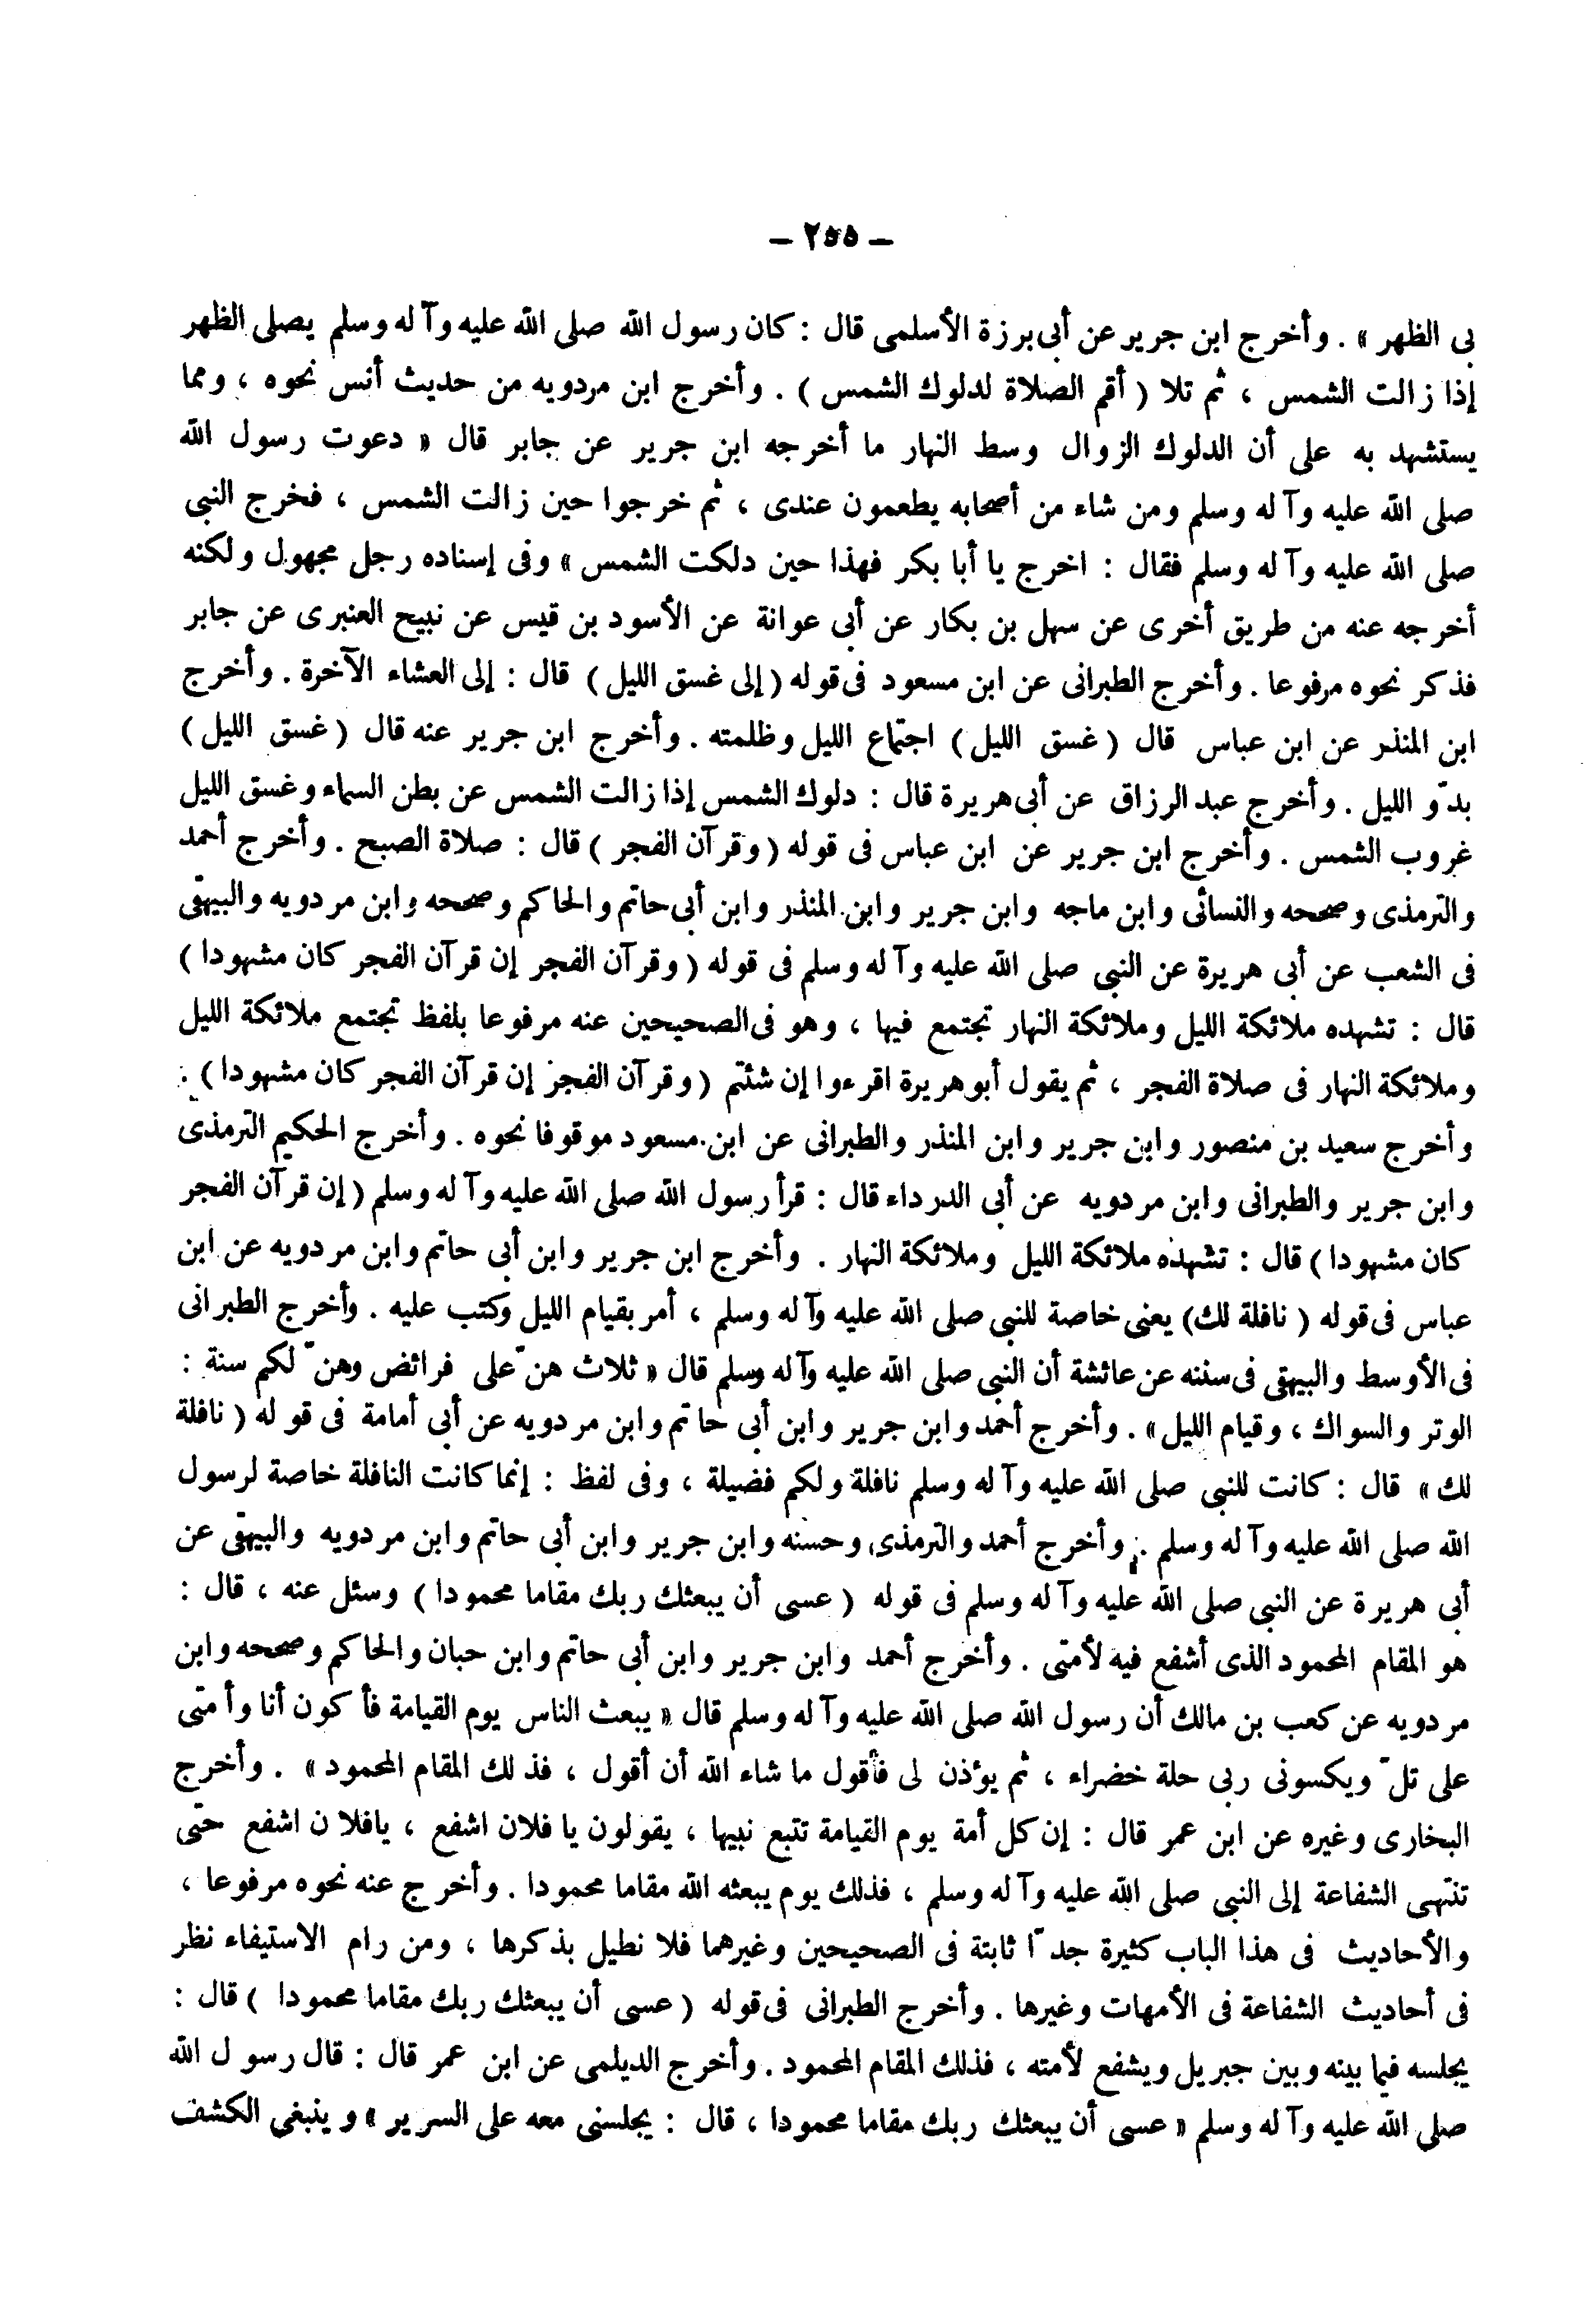 – ٢٥٥ –
بى الظهر » . وأخرج ابن جرير عن أبى برزة الأسلمى قال : كان رسول الله صلى الله عليه وآله وسلم يصلى الظهر
إذا زالت الشمس ، ثم تلا ( أقم الصلاة لدلوك الشمس ) . وأخرج ابن مردويه من حديث أنس نحوه ، ومما
يستشهد به على أن الدلوك الزوال وسط النهار ما أخرجه ابن جرير عن جابر قال « دعوت رسول الله
صلى الله عليه وآله وسلم ومن شاء من أصحابه يطعمون عندى ، ثم خرجوا حين زالت الشمس ، فخرج النبى
صلى الله عليه وآله وسلم فقال : اخرج يا أبا بكر فهذا حين دلكت الشمس » وفى إسناده رجل مجهول ولكنه
أخرجه عنه من طريق أخرى عن سهل بن بكار عن أبى عوانة عن الأسود بن قيس عن نبيح العنبرى عن جابر
فذكر نحوه مرفوعا . وأخرج الطبرانى عن ابن مسعود فى قوله ( إلى غسق الليل ) قال : إلى العشاء الآخرة . وأخرج
ابن المنذر عن ابن عباس قال ( غسق الليل ) اجتماع الليل وظلمته . وأخرج ابن جرير عنه قال ( غسق الليل )
بدوّ الليل . وأخرج عبد الرزاق عن أبى هريرة قال : دلوك الشمس إذا زالت الشمس عن بطن السماء وغسق الليل
غروب الشمس . وأخرج ابن جرير عن ابن عباس فى قوله ( وقرآن الفجر ) قال : صلاة الصبح . وأخرج أحمد
والترمذى وصححه والنسائى وابن ماجه وابن جرير وابن المنذر وابن أبى حاتم والحاكم وصححه وابن مردويه والبيهقى
فى الشعب عن أبى هريرة عن النبى صلى الله عليه وآله وسلم فى قوله ( وقرآن الفجر إن قرآن الفجر كان مشهودا )
قال : تشهده ملائكة الليل وملائكة النهار تجتمع فيها ، وهو فى الصحيحين عنه مرفوعا بلفظ تجتمع ملائكة الليل
وملائكة النهار فى صلاة الفجر ، ثم يقول أبو هريرة اقرءوا إن شئتم ( وقرآن الفجر إن قرآن الفجر كان مشهودا ) .
وأخرج سعيد بن منصور وابن جرير وابن المنذر والطبرانى عن ابن مسعود موقوفا نحوه . وأخرج الحكيم الترمذى
وابن جرير والطبرانى وابن مردويه عن أبى الدرداء قال : قرأ رسول الله صلى الله عليه وآله وسلم ( إن قرآن الفجر
كان مشهودا ) قال : تشهده ملائكة الليل وملائكة النهار . وأخرج ابن جرير وابن أبى حاتم وابن مردويه عن ابن
عباس فى قوله ( نافلة لك ) يعنى خاصة للنبى صلى الله عليه وآله وسلم ، أمر بقيام الليل وكتب عليه . وأخرج الطبرانى
فى الأوسط والبيهقى فى سننه عن عائشة أن النبى صلى الله عليه وآله وسلم قال « ثلاث هنّ على فرائض وهنّ لكم سنة :
الوتر والسواك ، وقيام الليل » . وأخرج أحمد وابن جرير وابن أبى حاتم وابن مردويه عن أبى أمامة فى قوله ( نافلة
لك » قال : كانت للنبى صلى الله عليه وآله وسلم نافلة ولكم فضيلة ، وفى لفظ : إنما كانت النافلة خاصة لرسول
الله صلى الله عليه وآله وسلم . وأخرج أحمد والترمذى وحسنه وابن جرير وابن أبى حاتم وابن مردويه والبيهقى عن
أبى هريرة عن النبى صلى الله عليه وآله وسلم فى قوله ( عسى أن يبعثك ربك مقاما محمودا ) وسئل عنه ، قال :
هو المقام المحمود الذى أشفع فيه لأمتى . وأخرج أحمد وابن جرير وابن أبى حاتم وابن حبان والحاكم وصححه وابن
مردويه عن كعب بن مالك أن رسول الله صلى الله عليه وآله وسلم قال « يبعث الناس يوم القيامة فأكون أنا وأمتى
على تلّ ويكسونى ربى حلة خضراء ، ثم يؤذن لى فأقول ما شاء الله أن أقول ، فذلك المقام المحمود » . وأخرج
البخارى وغيره عن ابن عمر قال : إن كل أمة يوم القيامة تتبع نبيها ، يقولون يا فلان اشفع ، يافلان اشفع حتى
تنتهى الشفاعة إلى النبى صلى الله عليه وآله وسلم ، فذلك يوم يبعثه الله مقاما محمودا . وأخرج عنه نحوه مرفوعا ،
والأحاديث فى هذا الباب كثيرة جدّا ثابتة فى الصحيحين وغيرهما فلا نطيل بذكرها ، ومن رام الاستيفاء نظر
فى أحاديث الشفاعة فى الأمهات وغيرها . وأخرج الطبرانى فى قوله ( عسى أن يبعثك ربك مقاما محمودا ) قال :
يجلسه فيما بينه وبين جبريل ويشفع لأمته ، فذلك المقام المحمود . وأخرج الديلمى عن ابن عمر قال : قال رسول الله
صلى الله عليه وآله وسلم « عسى أن يبعثك ربك مقاما محمودا ، قال : يجلسنى معه على السرير » وينبغى الكشف